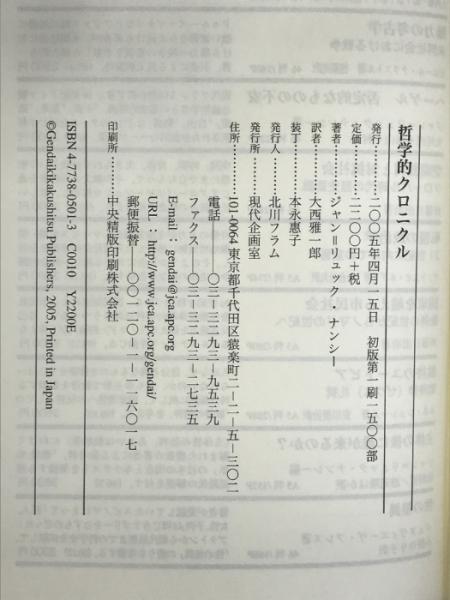 哲学的クロニクル
発行…………二〇〇五年四月一五日　初版第一刷一五〇〇部
定価…………二二〇〇円+税
著者…………ジャン=リュック・ナンシー
訳者…………大西雅一郎
装丁…………本永惠子
発行人………北川フラム
発行所………現代企画室
住所…………101-0064 東京都千代田区猿楽町二―二―五―三〇二
電話………〇三―三二九三―九五三九
ファクス……〇三―三二九三―二七三五
E-mail : gendai@jca.apc.org
URL : http://www.jca.apc.org/gendai/
郵便振替……〇〇一二〇―一―一一六〇一七
印刷所………中央精版印刷株式会社
ISBN 4-7738-0501-3　C0010　Y2200E
©Gendaikikakushitsu Publishers, 2005, Printed in Japan